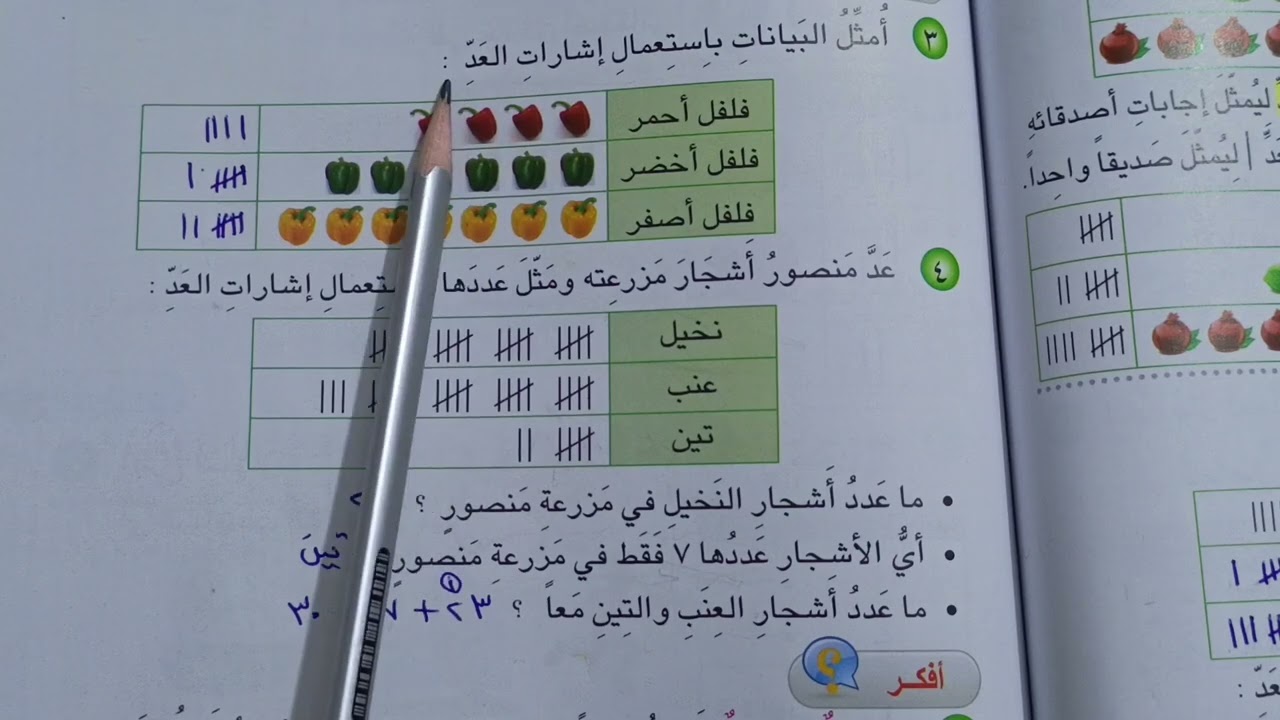 ٣ أُمثِّلُ البَياناتِ بِاستِعمالِ إشاراتِ العَدِّ :
فلفل أحمر
فلفل أخضر
فلفل أصفر
٤ عَدَّ مَنصورُ أَشجَارَ مَزرعتِه ومَثّلَ عَددَها إشاراتِ العَدِّ :
نخيل
عنب
تين
• ما عَددُ أَشجارِ النَخيلِ في مَزرعةِ مَنصورٍ ؟
• أيُّ الأشجارِ عَددُها ٧ فَقَط في مَزرعةِ مَنصورٍ تين
• ما عَددُ أَشجارِ العِنَبِ والتِينِ مَعاً ؟ ٢٣ + ٧ ٣٠
أفكر
ليُمثِّلَ إجاباتِ أصدقائهِ
لِيُمثِّلَ صَديقاً واحِداً.
عَدِّ :